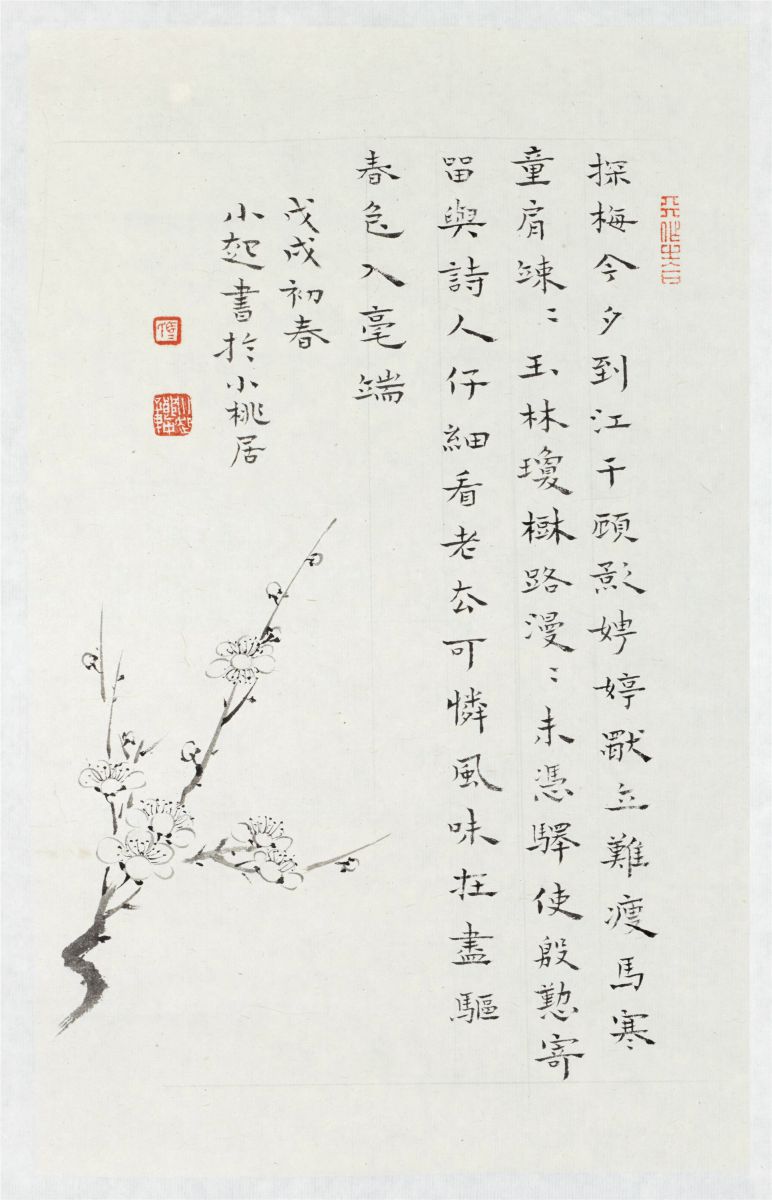 探梅今夕到江干顧影娉婷獨立難瘦馬寒
童肩竦〻玉林瓊樹路漫〻未憑驛使殷懃寄
留與詩人仔細看老去可憐風味在盡驅
春色入毫端
戊戌初春
小起書於小桃居